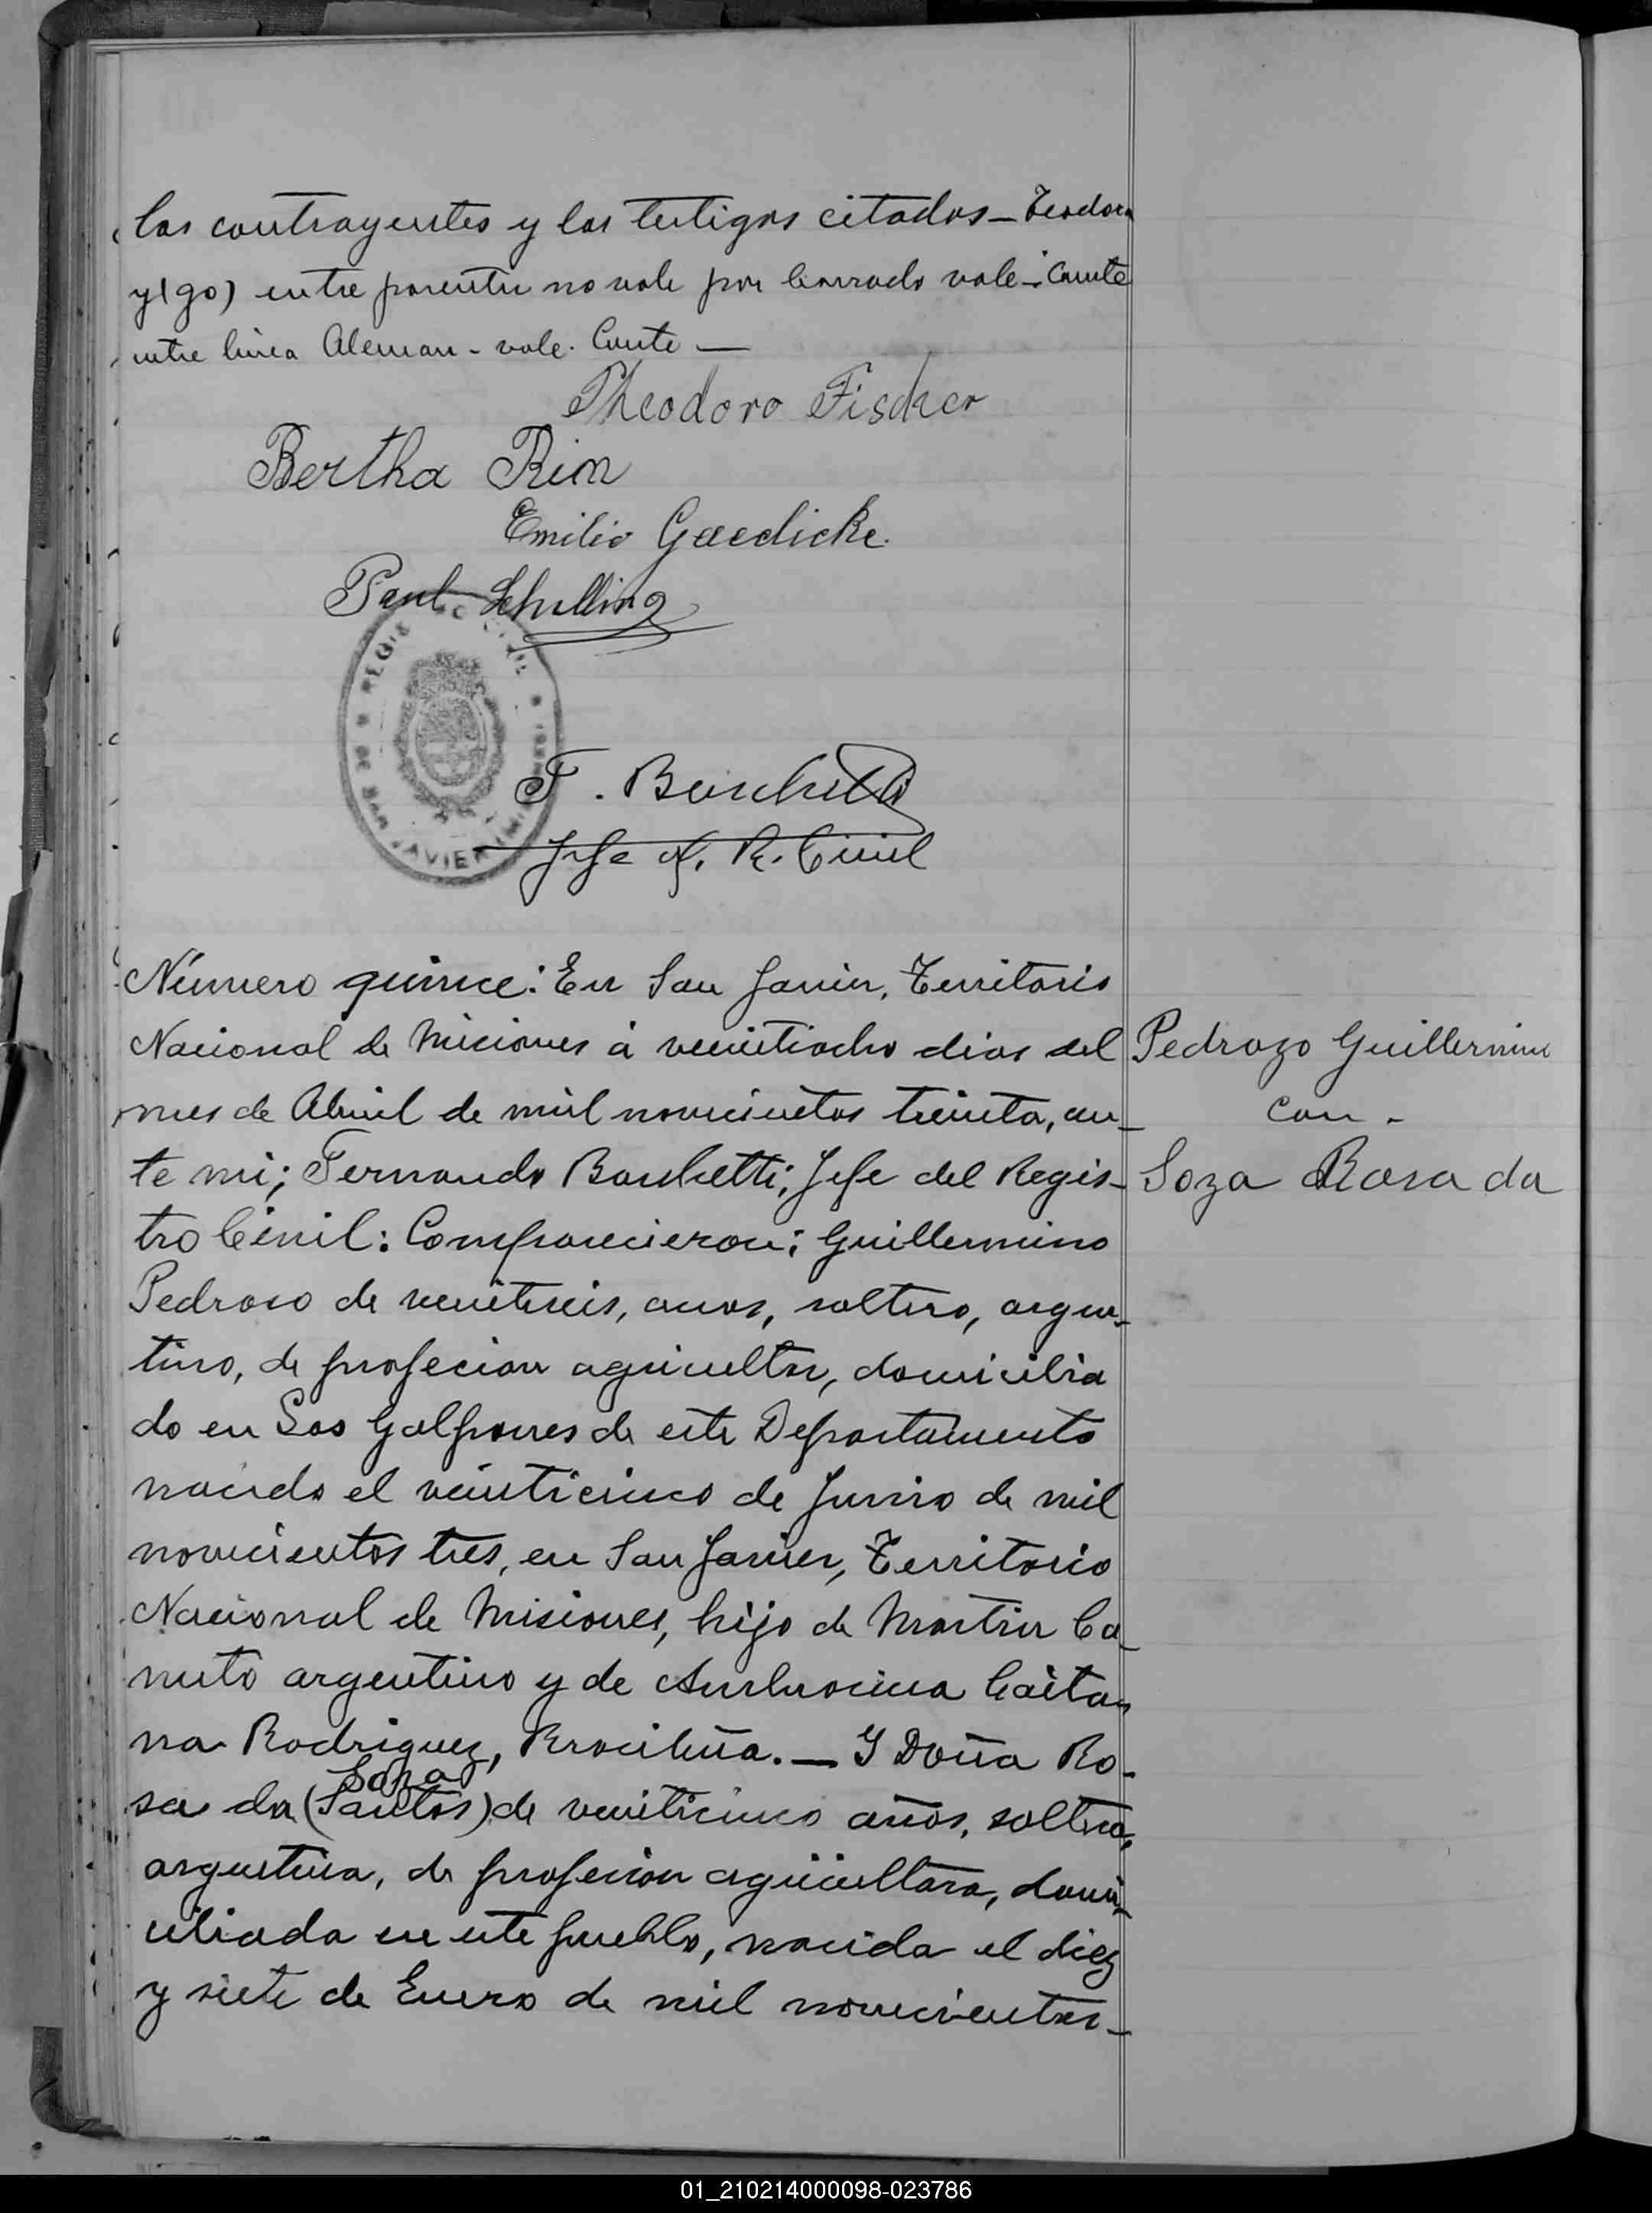 los contrayentes y los testigos citados - Teodoro
y (go) entre parentesi no vale por borrado vale - Conste
entre linea Aleman - vale. Conste —
Theodoro Fischer
Bertha Rim
Emilio Gaedicke.
Paul Schilling
REGISTRO CIVIL DE SAN JAVIER (MISIONES)
F. Bonchetti
Jefe of. R. Civil
Número quince: En San Javier, Territorio
Nacional de Miciones á veintiocho dias del
mes de Abril de mil novecientos treinta, an-
te mi; Fernando Bonchetti; Jefe del Regis-
tro Civil: Comparecieron; Guillermino
Pedroso de veinteseis, anos, soltero, argen-
tino, de profecion agricultor, domicilia
do en Los Galpones de este Departamento
nacido el veinticinco de Junio de mil
novecientos tres, en San Javier, Territorio
Nacional de Misiones, hijo de Martin Ca-
nuto argentino y de Ambrocina Caita-
na Rodriguez, Brocileña. — Y Doña Ro-
Soza
sa da (Santos) de veinticinco años, soltera,
argentina, de profecion agricultora, domi-
ciliada en este pueblo, nacida el diez
y siete de Enero de mil novecientos -
Pedrozo Guillermino
con -
Soza Rosa da
01_210214000098-023786